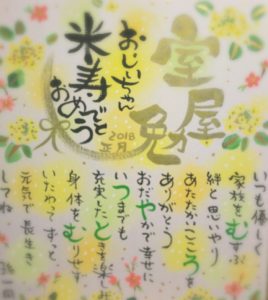 室屋
勉
おじいちゃん
米寿
おめでとう
2018
正月
いつも優しく
家族をむすぶ
絆と思いやり
あたたかいこころを
ありがとう
おだやかで幸せに
いつまでも
充実したときを楽しみ
身体をむりせず
いたわってずっと
元気で長生き
してね
一同